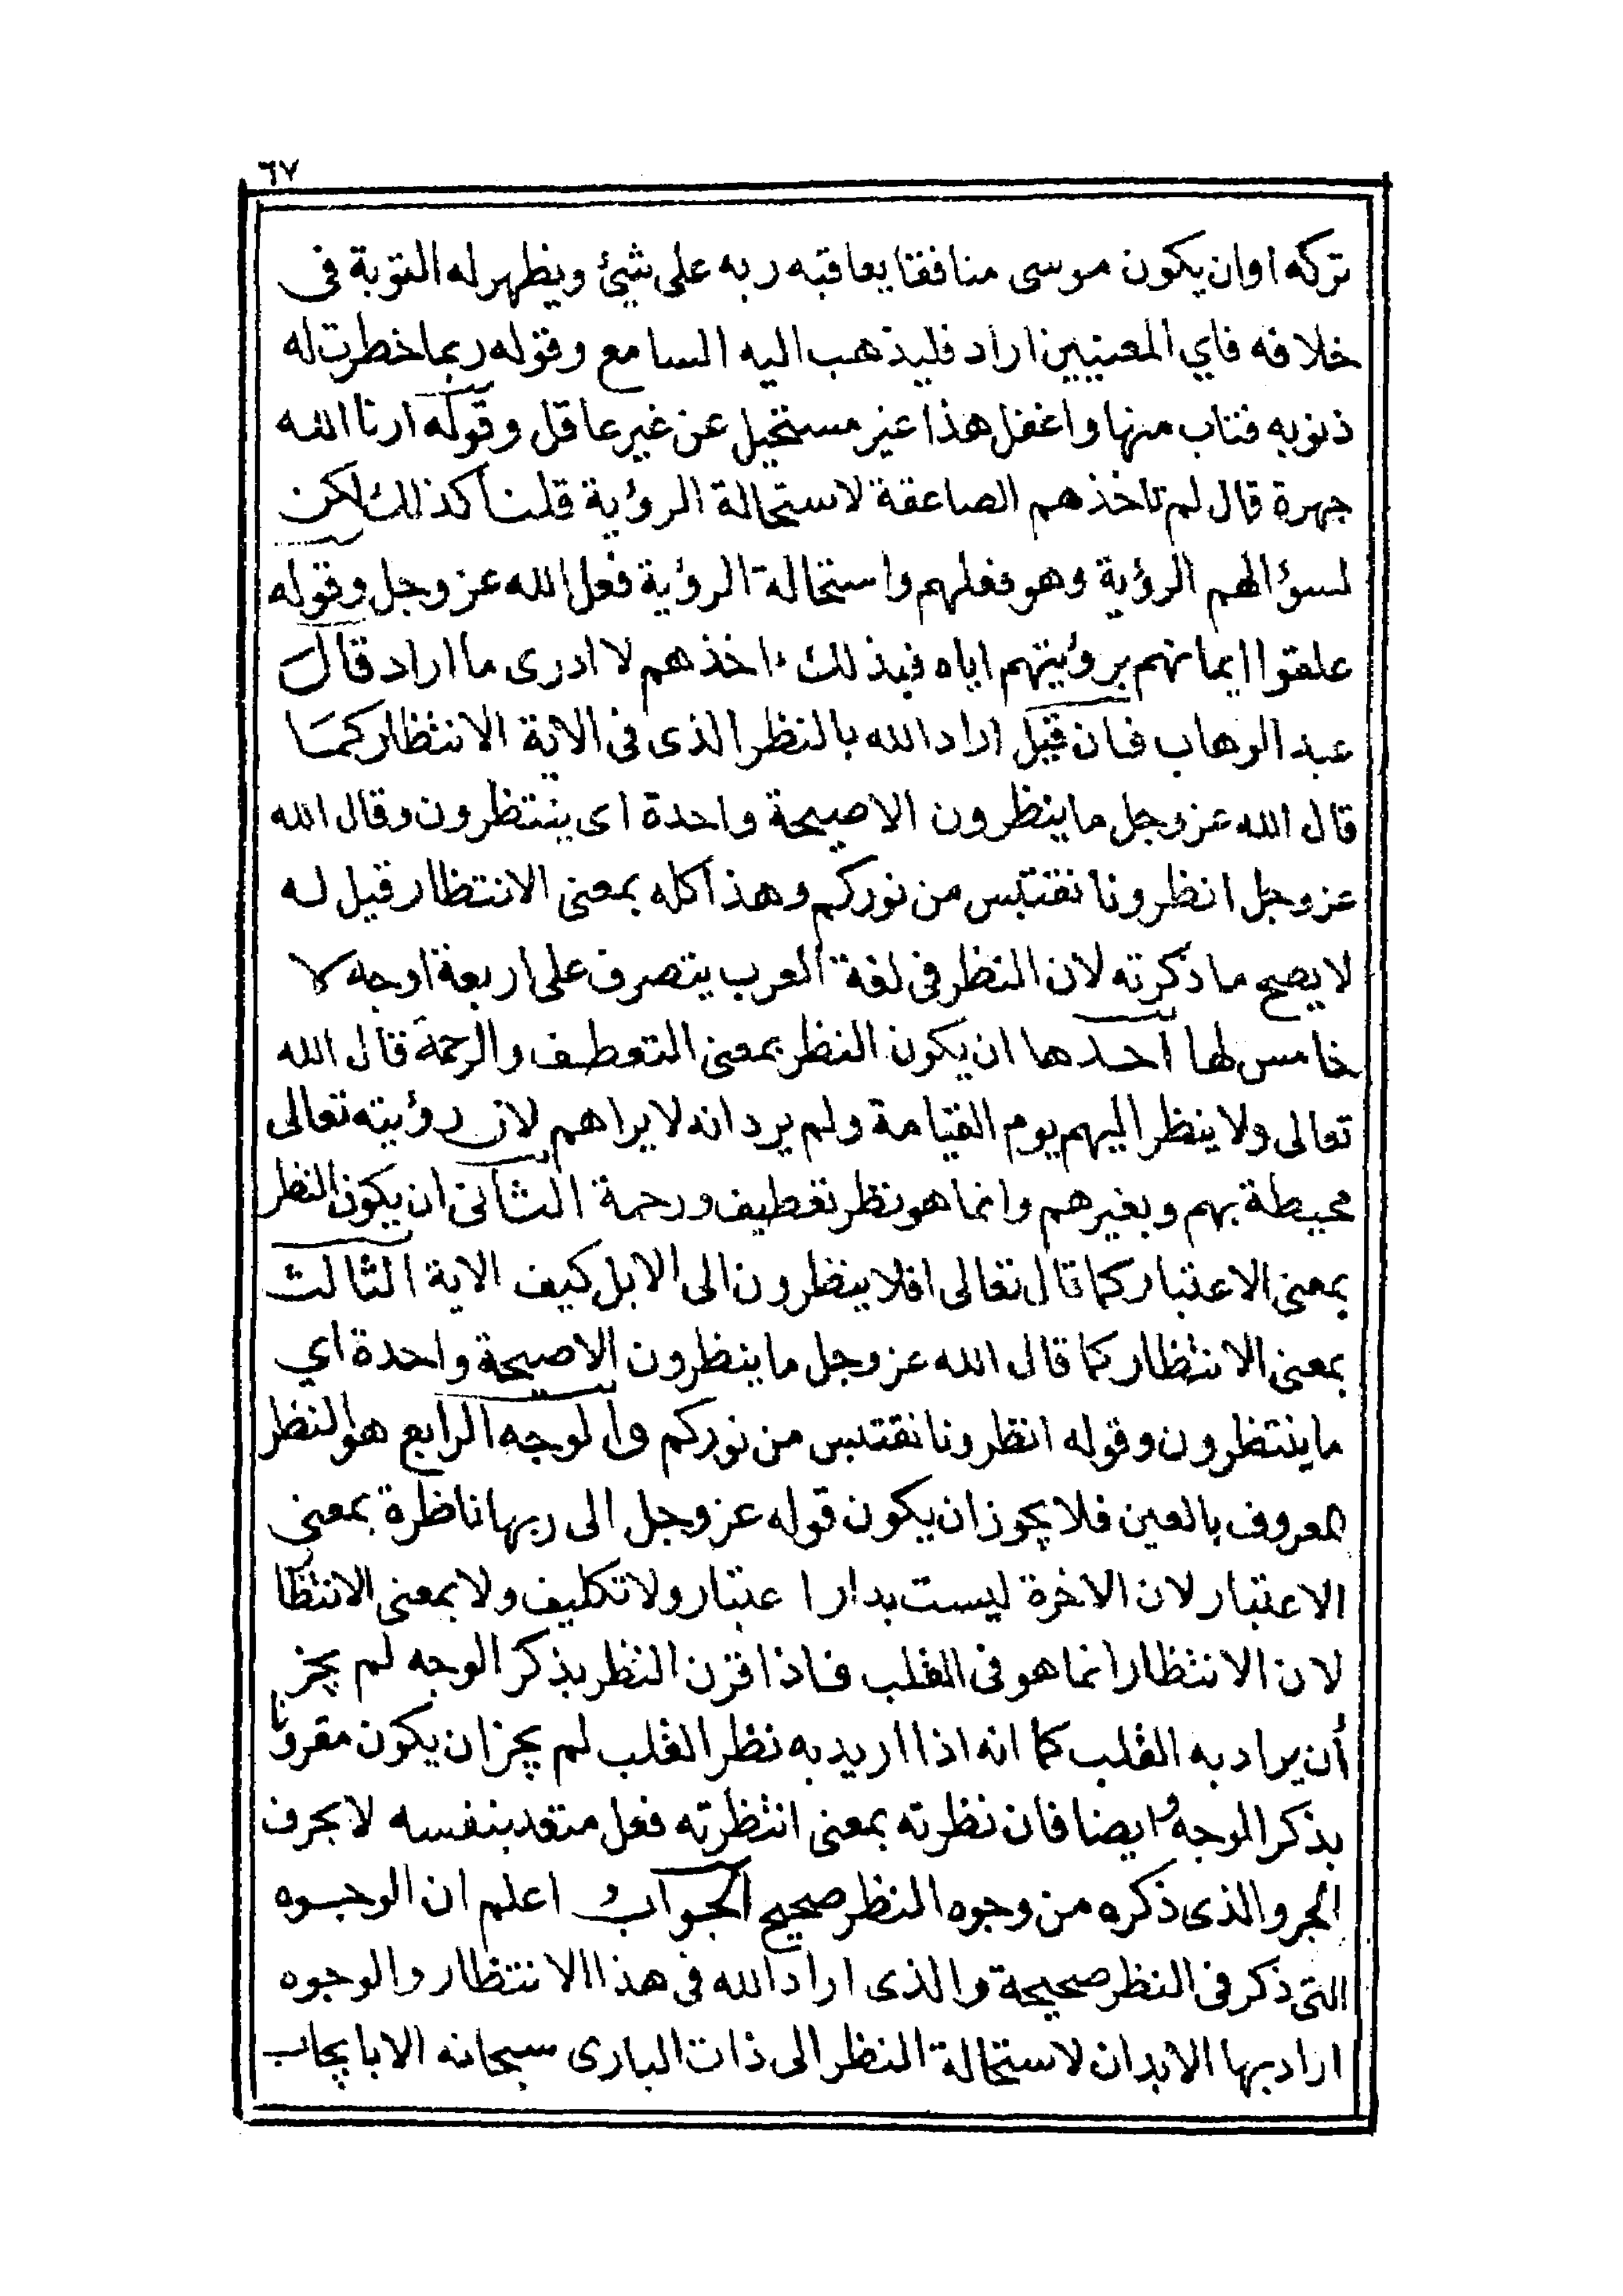 ٦٧
تركه اوان يكون موسى منافقا يعاقبه ربه على شيئ ويظهر له التوبة فى
خلافه فاي المعنيين اراد فليذهب اليه السامع وقوله ربما خطرت له
ذنوبه فتاب منها واغفل هذا غير مستحيل عن غير عاقل وقوله ارنا الله
جهرة قال لم تاخذهم الصاعقة لاستحالة الرؤية قلنا كذلك لكن
لسؤالهم الرؤية وهو فعلهم واستحالة الرؤية فعل الله عز وجل وقوله
علقوا ايمانهم برؤيتهم اياه فبذلك اخذهم لا ادرى ما اراد قال
عبد الوهاب فان قيل اراد الله بالنظر الذى فى الاية الانتظار كما
قال الله عز وجل ما ينظرون الا صيحة واحدة اى ينتظرون وقال الله
عز وجل انظرونا نقتبس من نوركم وهذا كله بمعنى الانتظار قيل له
لا يصح ما ذكرته لان النظر فى لغة العرب يتصرف على اربعة اوجه لا
خامس لها احدها ان يكون النظر بمعنى التعطف والرحمة قال الله
تعالى ولا ينظر اليهم يوم القيامة ولم يرد انه لا يراهم لان رؤيته تعالى
محيطة بهم وبغيرهم وانما هو نظر تعطيف ورحمة الثانى ان يكون النظر
بمعنى الاعتبار كما قال تعالى افلا ينظرون الى الابل كيف الاية الثالث
بمعنى الانتظار كما قال الله عز وجل ما ينظرون الا صيحة واحدة اي
ما ينتظرون وقوله انظرونا نقتبس من نوركم والوجه الرابع هو النظر
المعروف بالعين فلا يجوز ان يكون قوله عز وجل الى ربها ناظرة بمعنى
الاعتبار لان الاخرة ليست بدار اعتبار ولا تكليف ولا بمعنى الانتظار
لان الانتظار انما هو فى القلب فاذا قرن النظر بذكر الوجه لم يجز
أن يراد به القلب كما انه اذا اريد به نظر القلب لم يجز ان يكون مقرونا
بذكر الوجه وايضا فان نظرته بمعنى انتظرته فعل متعد بنفسه لا بحرف
الجر والذى ذكره من وجوه النظر صحيح الجواب اعلم ان الوجوه
التى ذكر فى النظر صحيحة والذى اراد الله فى هذا الانتظار والوجوه
اراد بها الابدان لاستحالة النظر الى ذات البارى سبحانه الا بايجاب